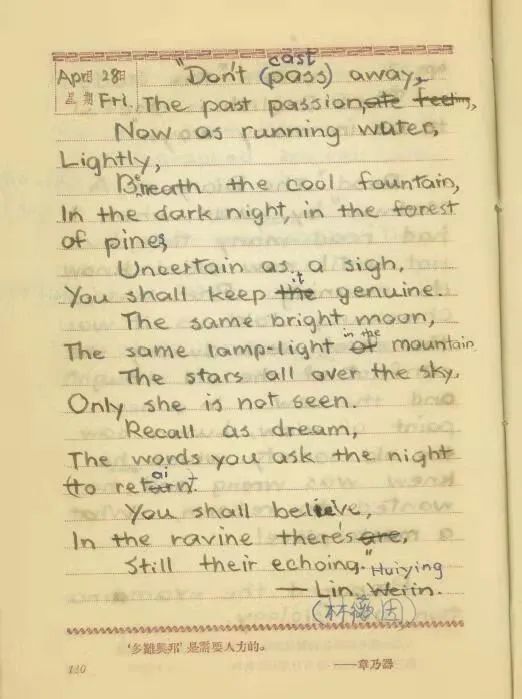 cast
"Don't (pass) away,
Apr月 28日
星期 Fri. The past passion,ate feeling,
Now as running water,
Lightly,
Beneath the cool fountain,
In the dark night, in the forest
of pines,
Uncertain as a sigh,
it
You shall keep the genuine.
The same bright moon,
in the
The same lamp-light of mountain
The stars all over the sky.
Only she is not seen.
Recall as dream,
The words you ask the night
ai
(to return.
You shall believe,
In the ravine there's are,
Still their echoing."
Huiying
— Lin, Weiin.
(林徽因)
'多難興邦' 是需要人力的。
——章乃器
120